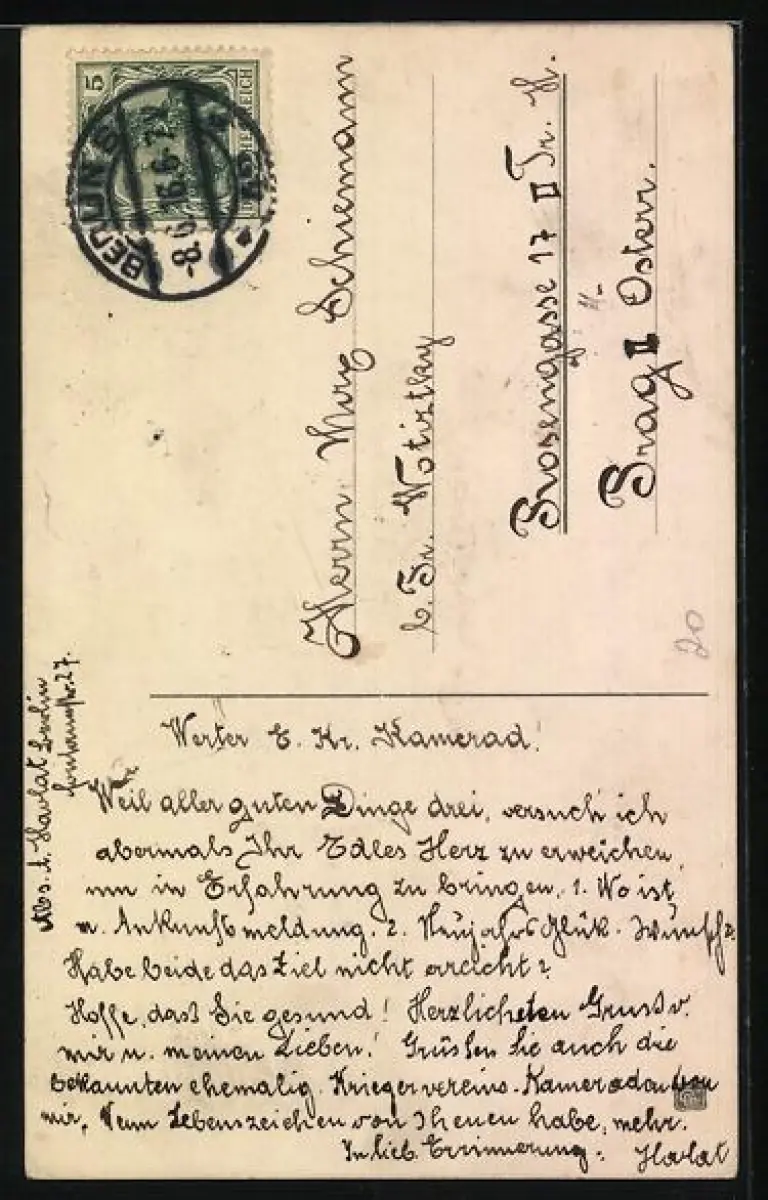 5
BERLIN S
-8.6.15.6-7N
Herrn Max Schiemann
b. Fr. Wotitzky
Rosengasse 17 II Tr. H.
Prag II Österr.
20
Abs. A. Havlat Berlin
27.
Werter E. Kr. Kamerad!
Weil aller guten Dinge drei, versuch ich
abermals Ihr Edles Herz zu erweichen,
um in Erfahrung zu bringen, 1. Wo ist
u. Ankunftsmeldung. 2. Neujahrs Glük-Wünsche
Habe beide das Ziel nicht ereicht?
Hoffe, dass Sie gesund! Herzlichsten Gruss v.
mir u. meinen Lieben! Grüssen Sie auch die
bekannten ehemalig. Kriegervereins-Kameraden von
mir, Wenn Lebenszeichen von Ihenen habe, mehr.
In lieb. Errinnerung: Havlat